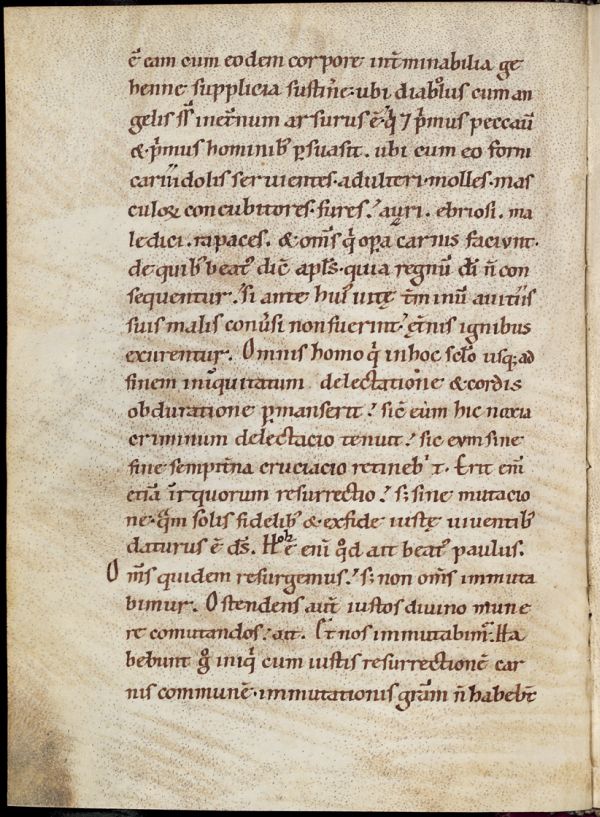 ē eam cum eodem corpore int̄minabilia ge
henne supplicia sustin̄e· ubi diabol᷒us cum an
gelis inet̄num arsurus ē· q̓ ⁊ p̓mus peccau᷒
&· p̓mus hominib᷒ p̱suasit. ubi cum eo forni
carii idolis seruientes· adulteri· molles· mas
culoꝝ concubitores· fures· auari. ebriosi. ma
ledici. rapaces. & om̄s q̓ oꝑa carnis faciunt·
de quib᷒ beat᷒ dic̄ apl̄s· quia regnū dī n̄ con
sequentur· si ante hui᷒ uitę t̄minū a uitiis
suis malis conūsi non fuerint· ęt̄nis ignibus
exurentur. Omnis homo q̓ inhoc sc̄lo usq; ad
finem iniquitatum delectatione & cordis
obduratione p̱manserit· sic̄ eum hic noxia
criminum delectacio tenuit· sic eum sine
fine sempit̄na cruciacio retineb᷒it. Erit eni᷒
etiā ist̄quorum resurrectio· s; sine mutacio
ne· quā solis fidelib᷒ & exfide iustę uiuentib᷒
daturus ē ds̄. Hoc ē eni᷒ qd̄ ait beat᷒ paulus.
Om̄s quidem resurgemus· s; non om̄s immuta
bimur. Ostendens aut̄ iustos diuino mune
re comutandos· ait. Et nos immutabim᷒. Ha
bebunt g̊ iniq̓ cum iustis resurrectionē car
nis communē· immutationis grām n̄ habebt̄